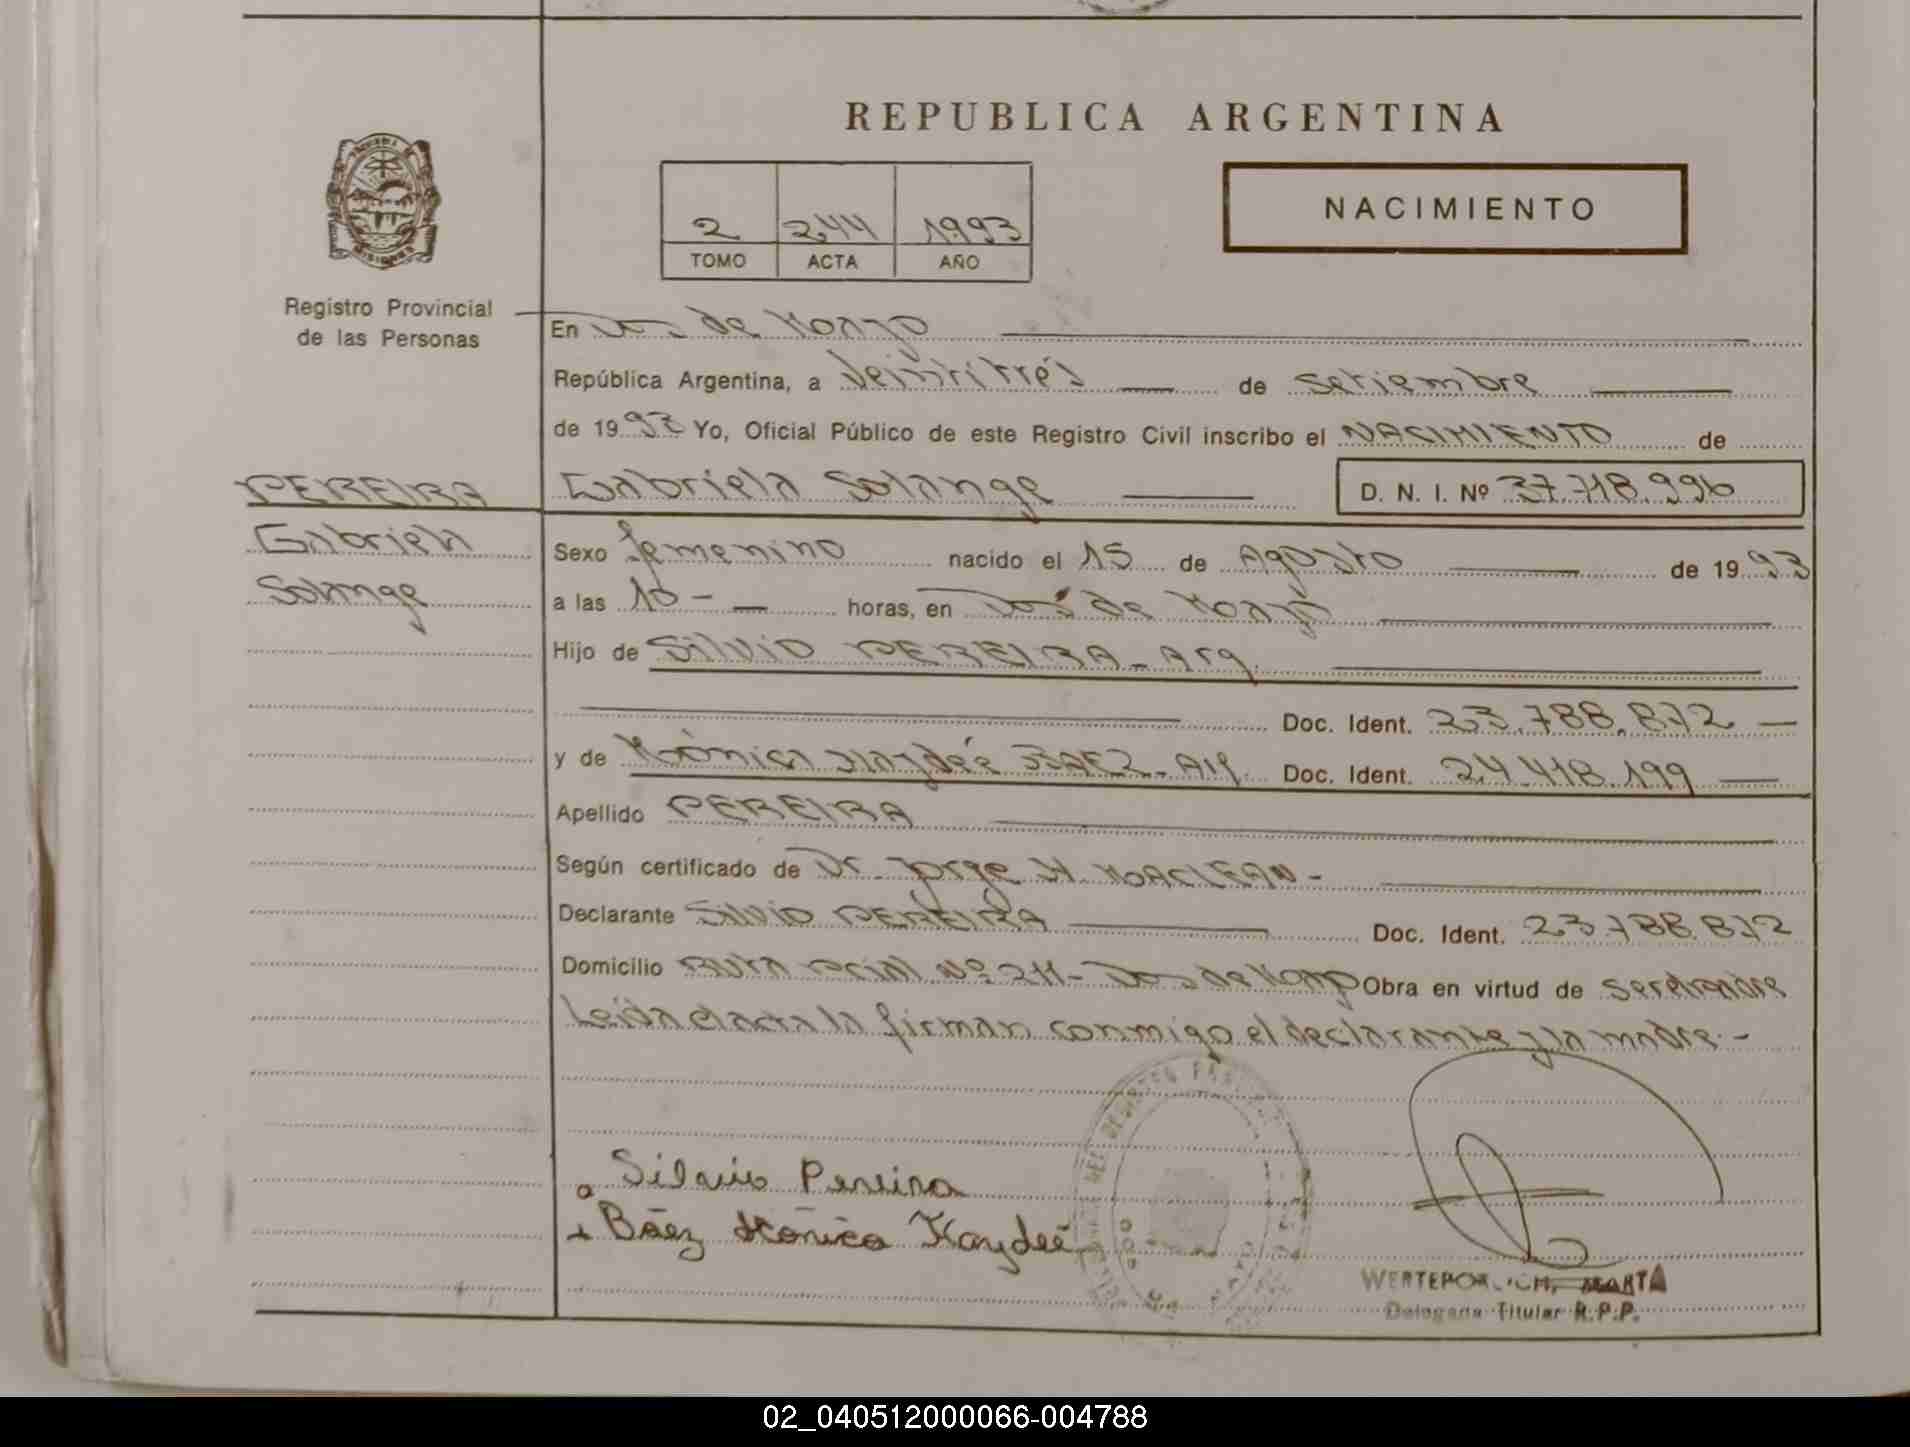 REPUBLICA ARGENTINA
NACIMIENTO
2 244 1993
TOMO ACTA AÑO
MISIONES
Registro Provincial
de las Personas
En Dos de Mayo
República Argentina, a Veintitrés de setiembre
de 1993 Yo, Oficial Público de este Registro Civil inscribo el NACIMIENTO de
PEREIRA Gabriela Solange D. N. I. Nº 37.718.996
Gabriela
Solange
Sexo femenino nacido el 15 de Agosto de 1993
a las 10- horas, en Dos de Mayo
Hijo de Silvio PEREIRA - Arg.
Doc. Ident. 23.788.872
y de Mónica Haydée BAEZ - Arg. Doc. Ident. 24.418.199
Apellido PEREIRA
Según certificado de Dr. Jorge H. MACLEAN -
Declarante Silvio PEREIRA Doc. Ident. 23.788.872
Domicilio Ruta Pcial Nº 211 - Dos de Mayo Obra en virtud de ser el padre
Leida el acta la firman conmigo el declarante y la madre. -
Silvio Pereira
Báez Mónica Haydeé
MARTA
Delegada Titular R.P.P.
02_040512000066-004788